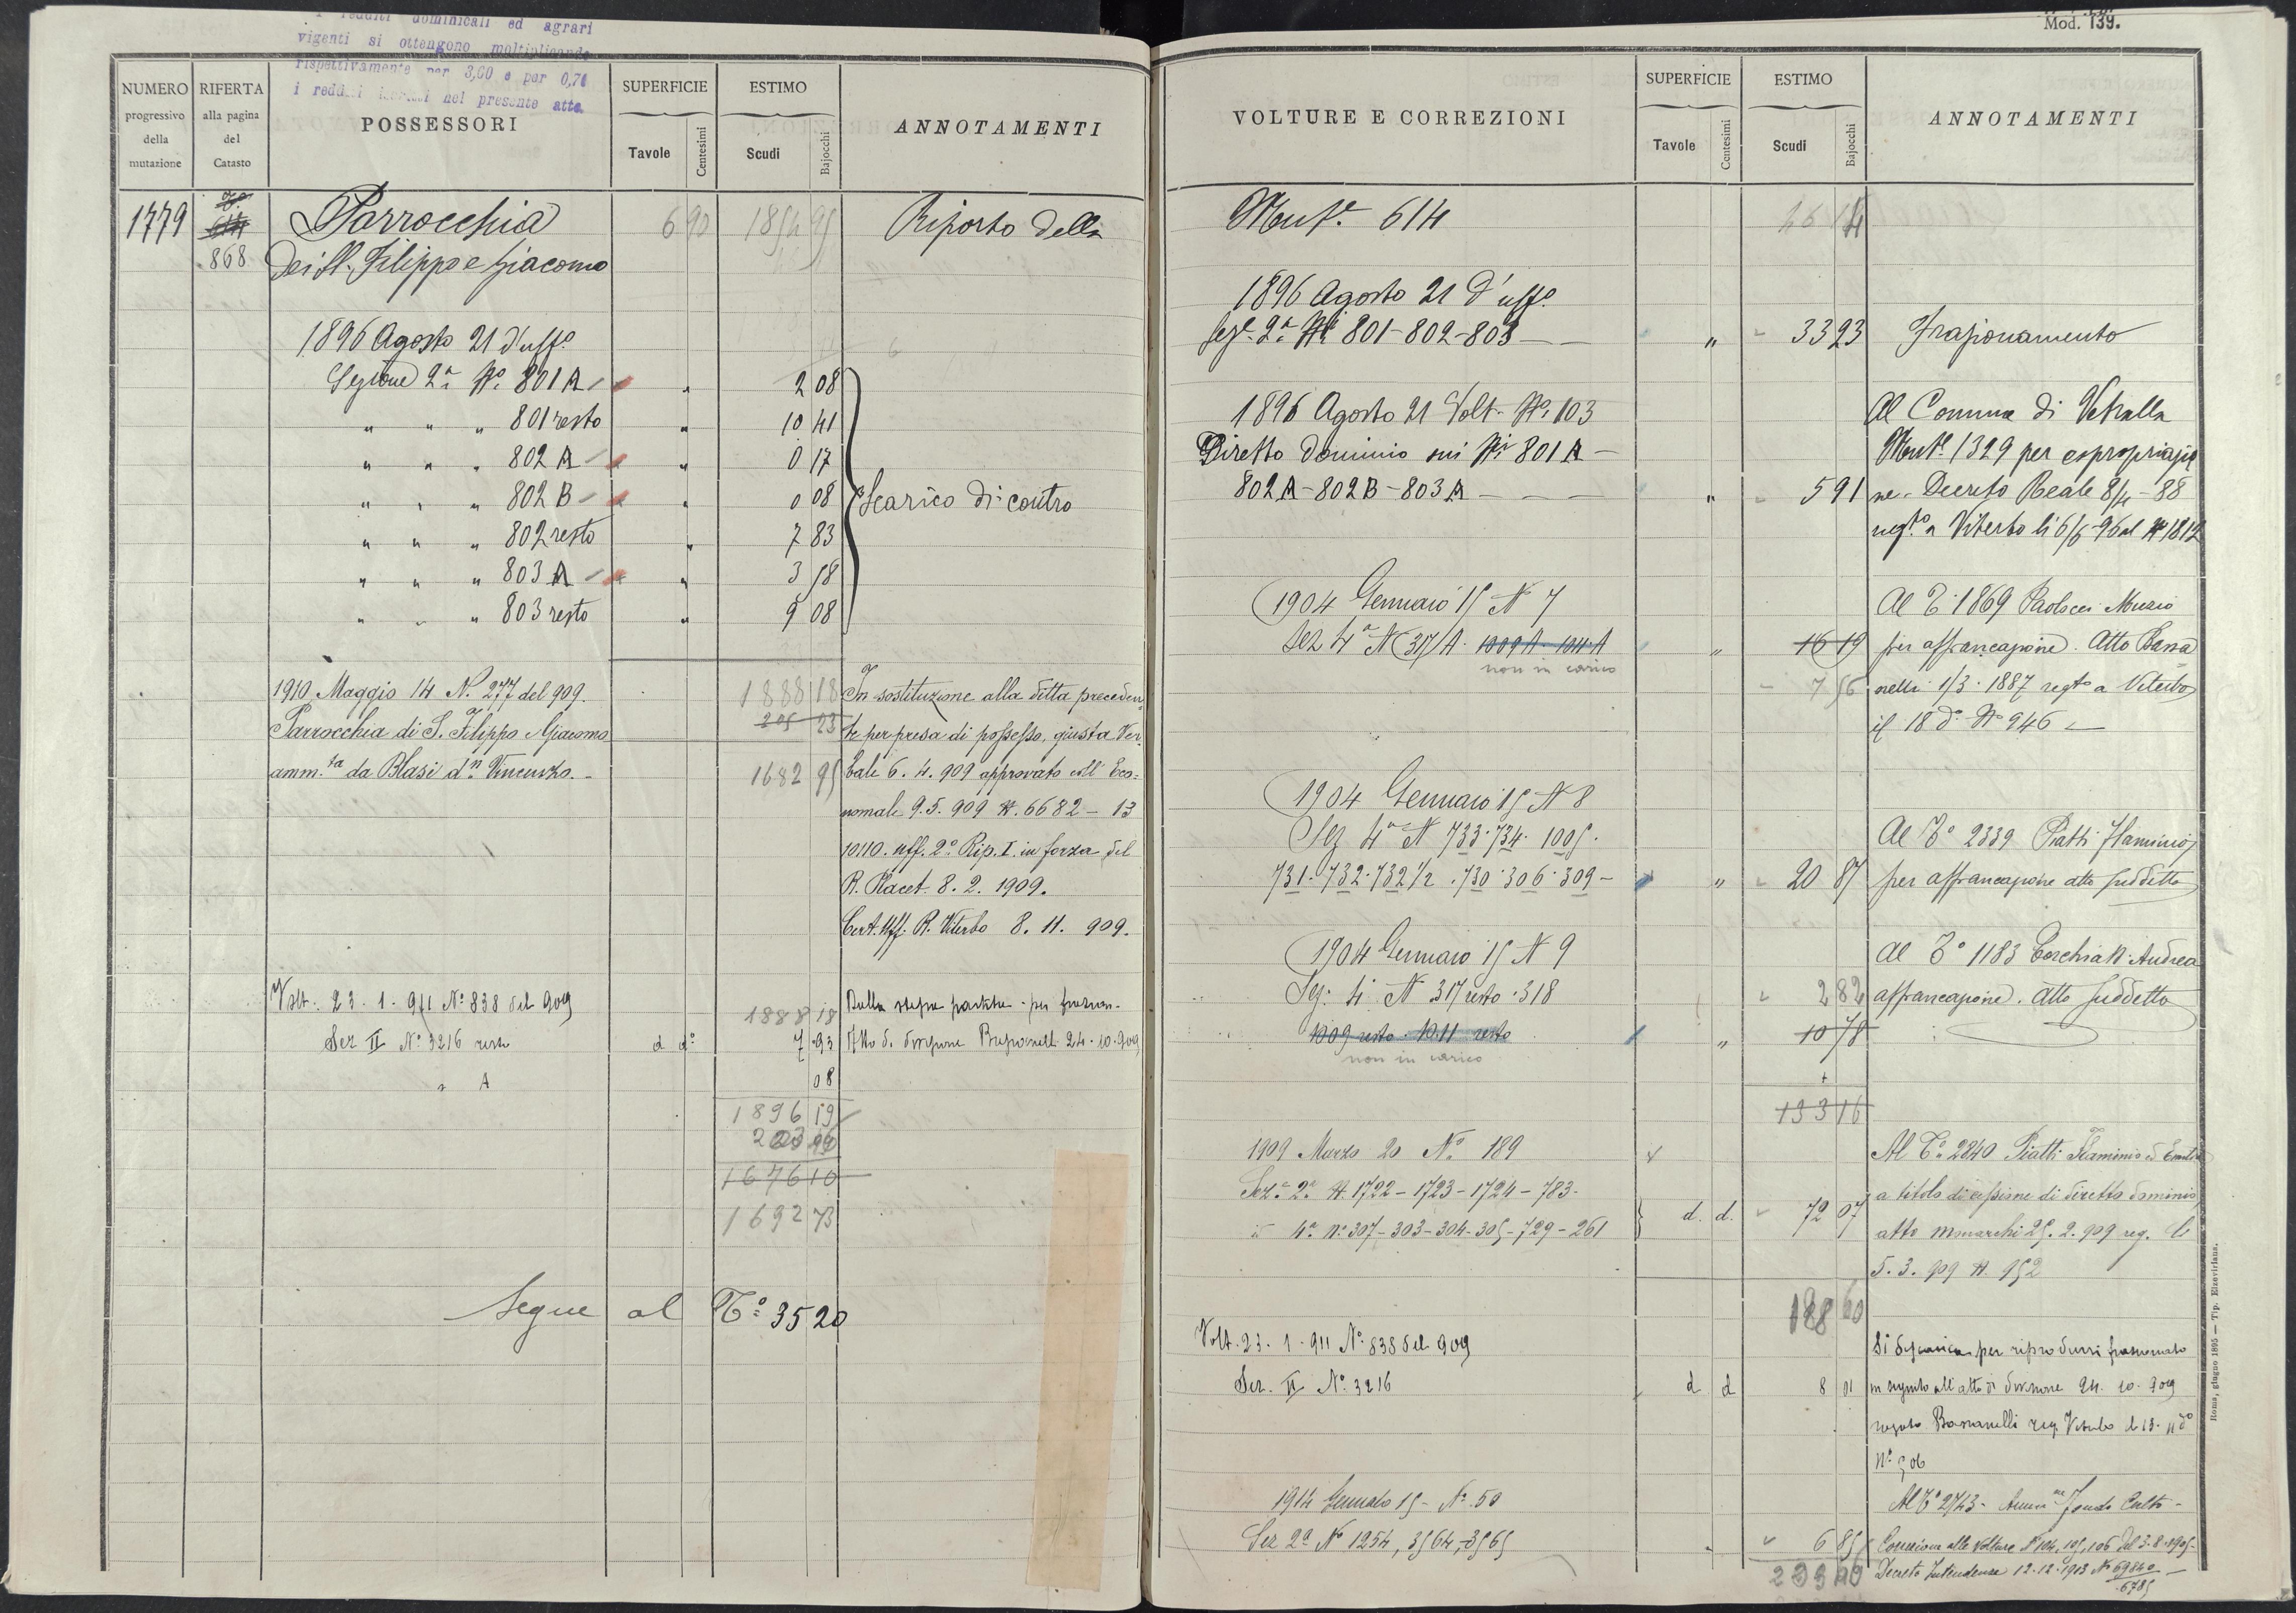 i redditi dominicali ed agrari
vigenti si ottengono moltiplicando
rispettivamente per 3,60 e per 0,70
i redditi nel presente atto.
NUMERO progressivo della mutazione
RIFERTA alla pagina del Catasto
POSSESSORI
SUPERFICIE
Tavole Centesimi
ESTIMO
Scudi Bajocchi
ANNOTAMENTI
1779
868
Parrocchia 6 90 1854 95 Riporto della
Dei SS. Filippo e Giacomo
1896 Agosto 21 d'uffo
Sezione 2a No 801 A 2 08
" " " 801 resto " 10 41
" " " 802 A " 0 17
" " " 802 B " 0 08 Scarico di contro
" " " 802 resto " 7 83
" " " 803 A " 3 58
" " " 803 resto " 9 08
1910 Maggio 14 N. 277 del 909. 1888 18 In sostituzione alla ditta preceden-
205 23
Parrocchia di S. Filippo e Giacomo te per presa di possesso, giusta Ver-
amm.ta da Blasi dn Vincenzo. 1682 95 bale 6. 4. 909 approvato coll' Eco-
nomale 9. 5. 909 N. 6682 - 13
10110. uff. 2o Rip. I. in forza del
R. Placet. 8. 2. 1909.
Cert. Uff. R. Viterbo 8. 11. 909.
Volt. 23. 1. 911 No 838 del 909 1888 18 Dalla stessa partita per frazion.
Sez II No 3216 resto d do 7 93 Atto di divisione 24. 10. 909
" A 08
1896 19
1676 10
1692 73
Segue al To 3520
Mod. 139.
VOLTURE E CORREZIONI
SUPERFICIE
Tavole Centesimi
ESTIMO
Scudi Bajocchi
ANNOTAMENTI
Mute 614
1896 Agosto 21 d'uffo
Seze 2a Ni 801-802-803 " 33 23 Frazionamento
1896 Agosto 21 Volt. No 103 Al Comune di Vetralla
Diretto dominio sui Ni 801 A - Mute 1329 per espropriazio
802 A - 802 B - 803 A " 5 91 ne. Decreto Reale 8/4-88
regto a Viterbo li 6/6-96 al N 1812
1904 Gennaio 15 N 7 Al To 1869 Paolocci Muzio
Sez 4a N 317/A. 1009 A - 1011 A " 16 19 per affrancazione. Atto Bassa
non in carico
7 56 nelli 1/3. 1887 regto a Viterbo
il 18 do No 946
1904 Gennaio 15 N 8
Sez 4a N 733. 734. 1005. Al To 2339 Piatti Flaminio
731. 732. 732 1/2. 730. 306. 309 - " 20 87 per affrancazione atto suddetto
1904 Gennaio 15 N 9 Al To 1183 Andrea
Sez: 4 N 317 resto. 318 2 82 affrancazione. Atto suddetto
1009 resto. 1011 resto " 10 78
non in carico
133 16
1909 Marzo 20 No 189 Al To 2840 Piatti Flaminio ed
Seza 2a N. 1722 - 1723 - 1724 - 783. a titolo di cessione di diretto dominio
id 4a No 307 - 303 - 304 - 305 - 729 - 261 d. d. 72 07
atto Monarchi 25. 2. 909 reg. li
5. 3. 909 N. 952
188 60
Volt. 23. 1. 911 No 838 del 909 Si discarica per riprodursi frazionato
Sez. II No 3216 d d 8 01 in seguito all'atto di divisione 24. 10. 909
rogato Bassanelli reg. Viterbo li 13. 11 do
No 506
1914 Gennaio 15 - No 50 Al To 2743 - Ammne Fondo Culto -
Sez 2a No 1254, 3564, 3565 6 85 Correzione alle Volture N 104, 105, 106 del 3. 8. 1905.
Decreto Intendenza 12. 12. 1913 No 69840/6785
Roma, giugno 1895 — Tip. Elzeviriana.